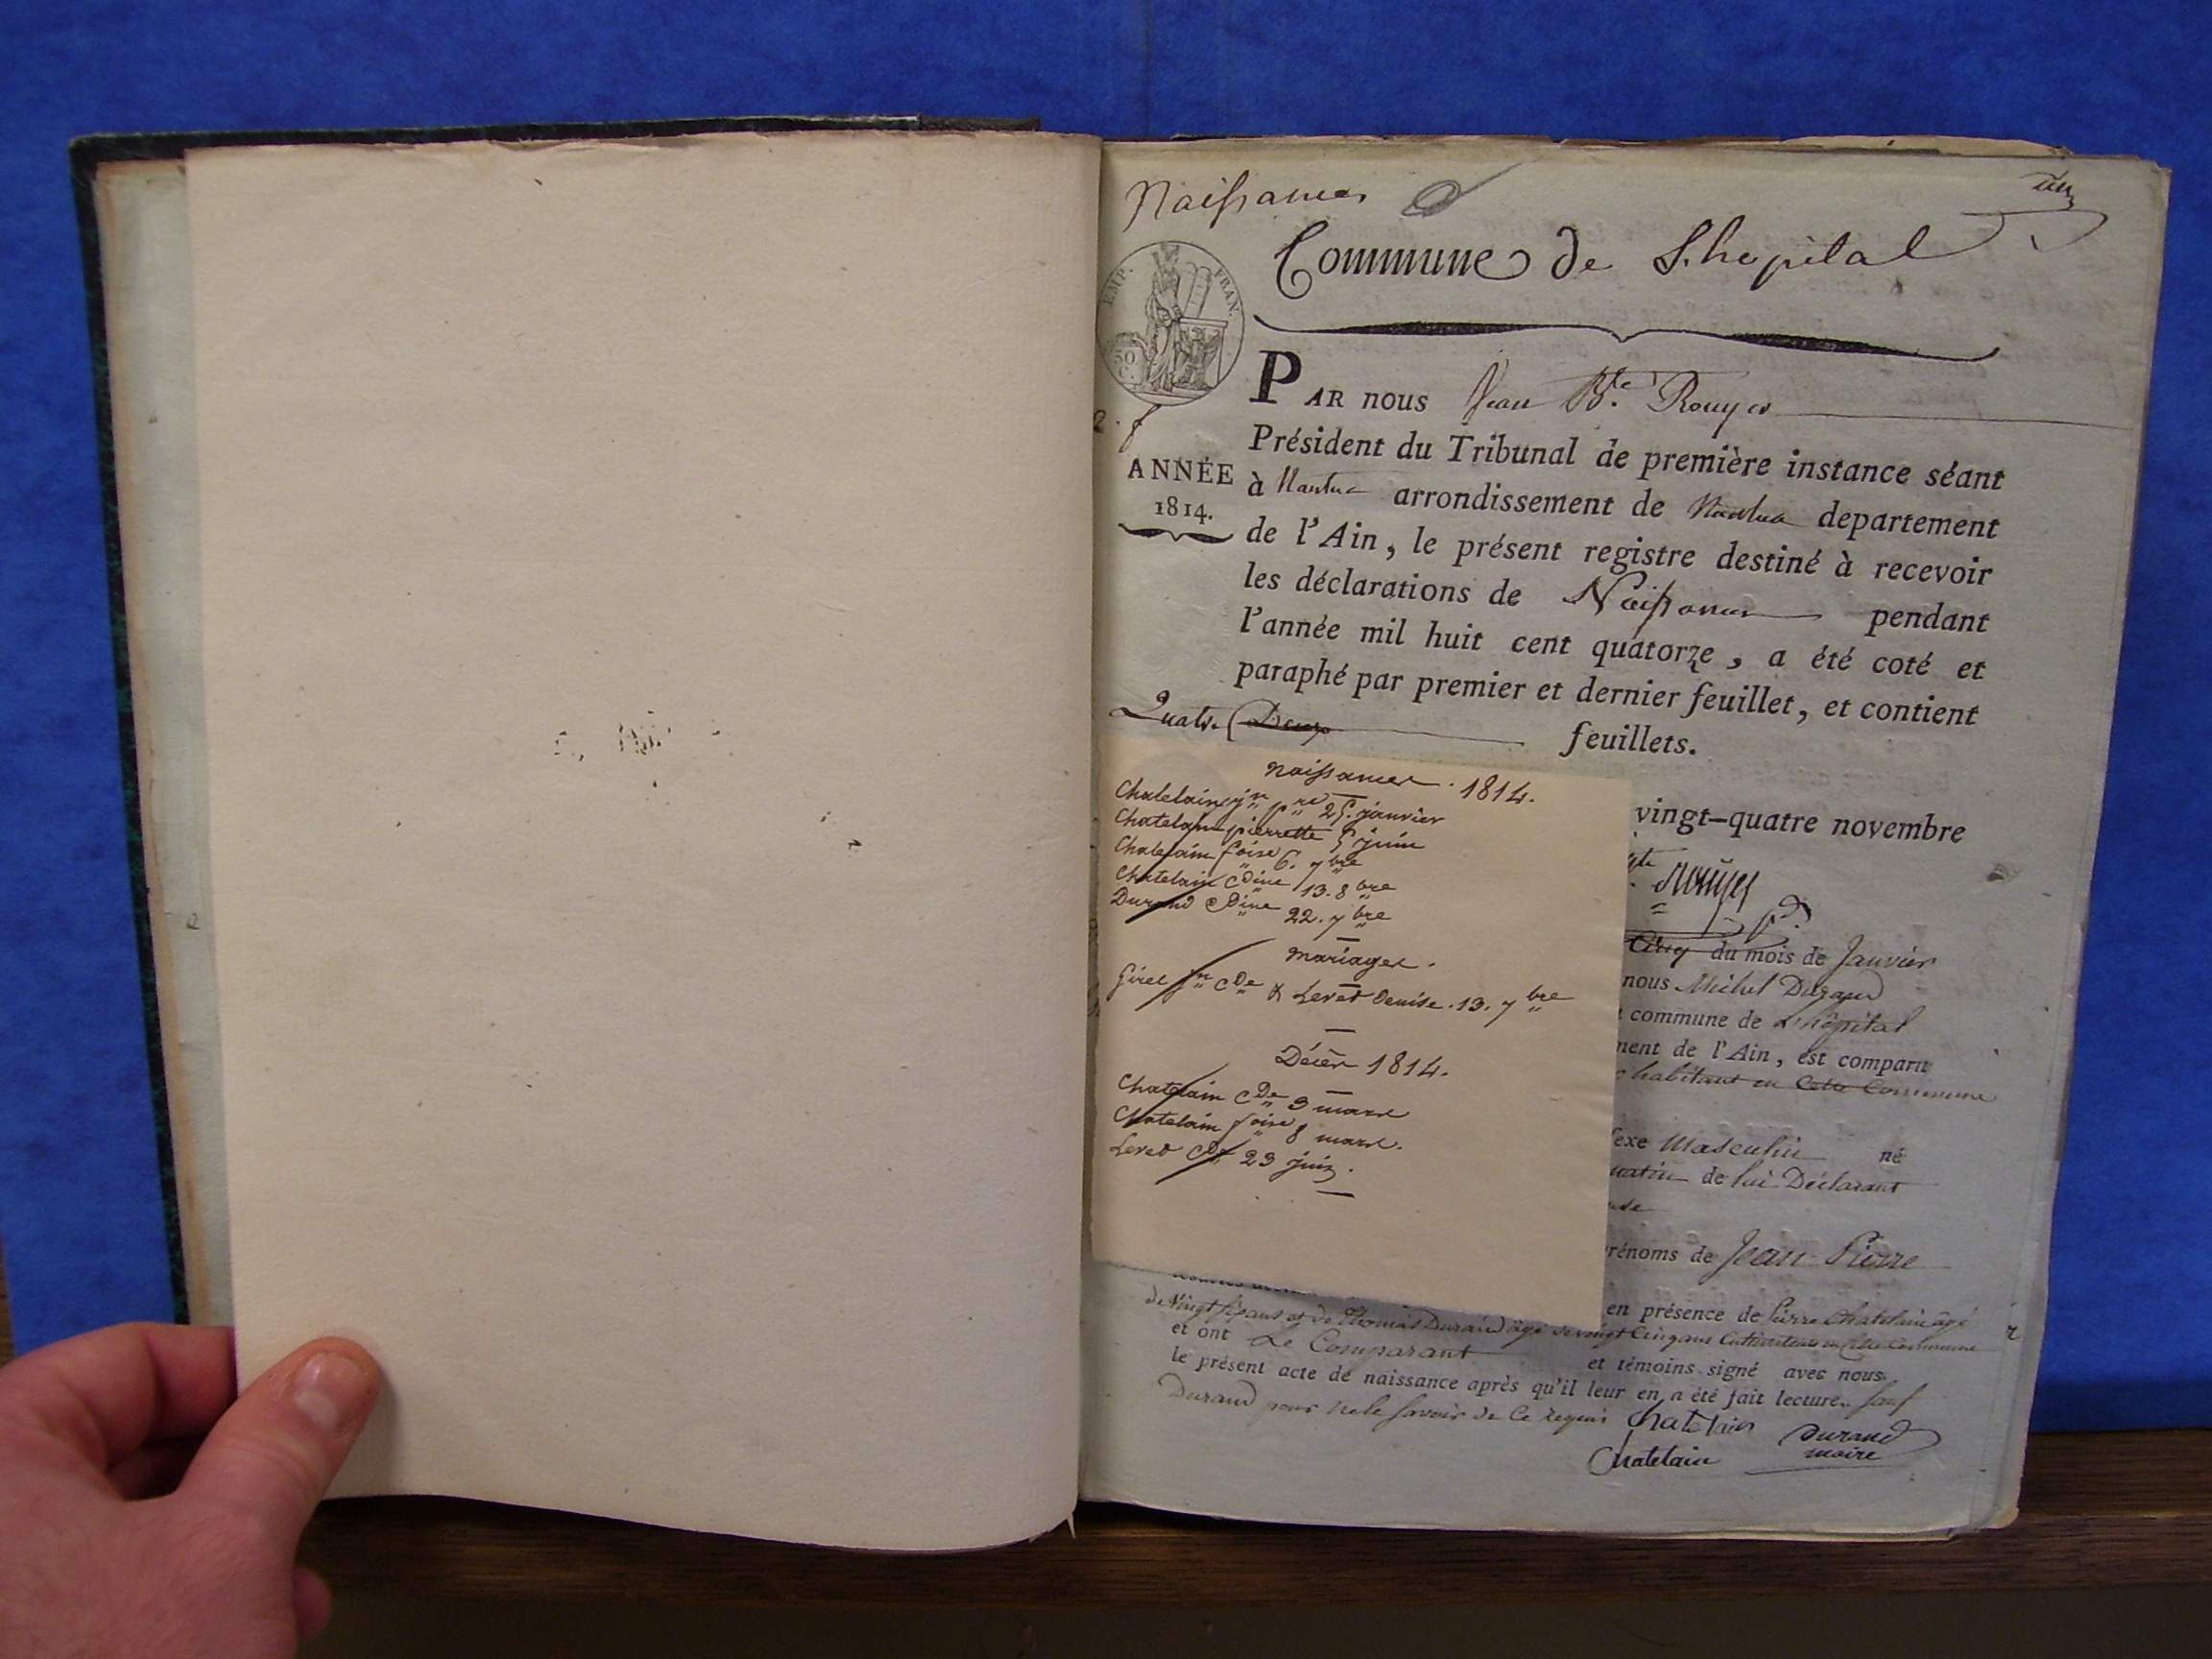 Naissances
un
Commune de Lhopital
EMP. FRAN.
50
C.
PAR nous Jean B.te Rouyer
Président du Tribunal de première instance séant
ANNÉE
1814.
à Nantua arrondissement de Nantua departement
de l'Ain, le présent registre destiné à recevoir
les déclarations de Naissances pendant
l'année mil huit cent quatorze, a été coté et
paraphé par premier et dernier feuillet, et contient
Quatre Deux feuillets.
Naissances. 1814.
Chatelain jn pre 25. janvier
Chatelain pierrette 5 juin
Chatelain foise 6. 7bre
Chatelain Cdine 13. 8bre
Durand Cdine 22. 7bre
Mariages.
Girel jn Cde & Levet Denise. 13. 7bre
Décès 1814.
Chatelain Cde 3 mars
Chatelain foise 8 mars.
Levet Cde 23 juin.
vingt-quatre novembre
Rouyer
Cinq du mois de Janvier
nous Michel Durand
commune de L'hôpital
ment de l'Ain, est comparu
habitant en Cette Commune
sexe Masculin né
matin de lui Déclarant
prénoms de Jean-Pierre
en présence de Pierre Chatelain âgé
de Vingt six ans et de Thomas Durand âgé de vingt Cinq ans Cultivateurs en Cette Commune
et ont Le Comparant et témoins signé avec nous
le présent acte de naissance après qu'il leur en a été fait lecture. sauf
Durand pour ne le savoir de Ce requis Chatelain
Chatelain Durand
maire